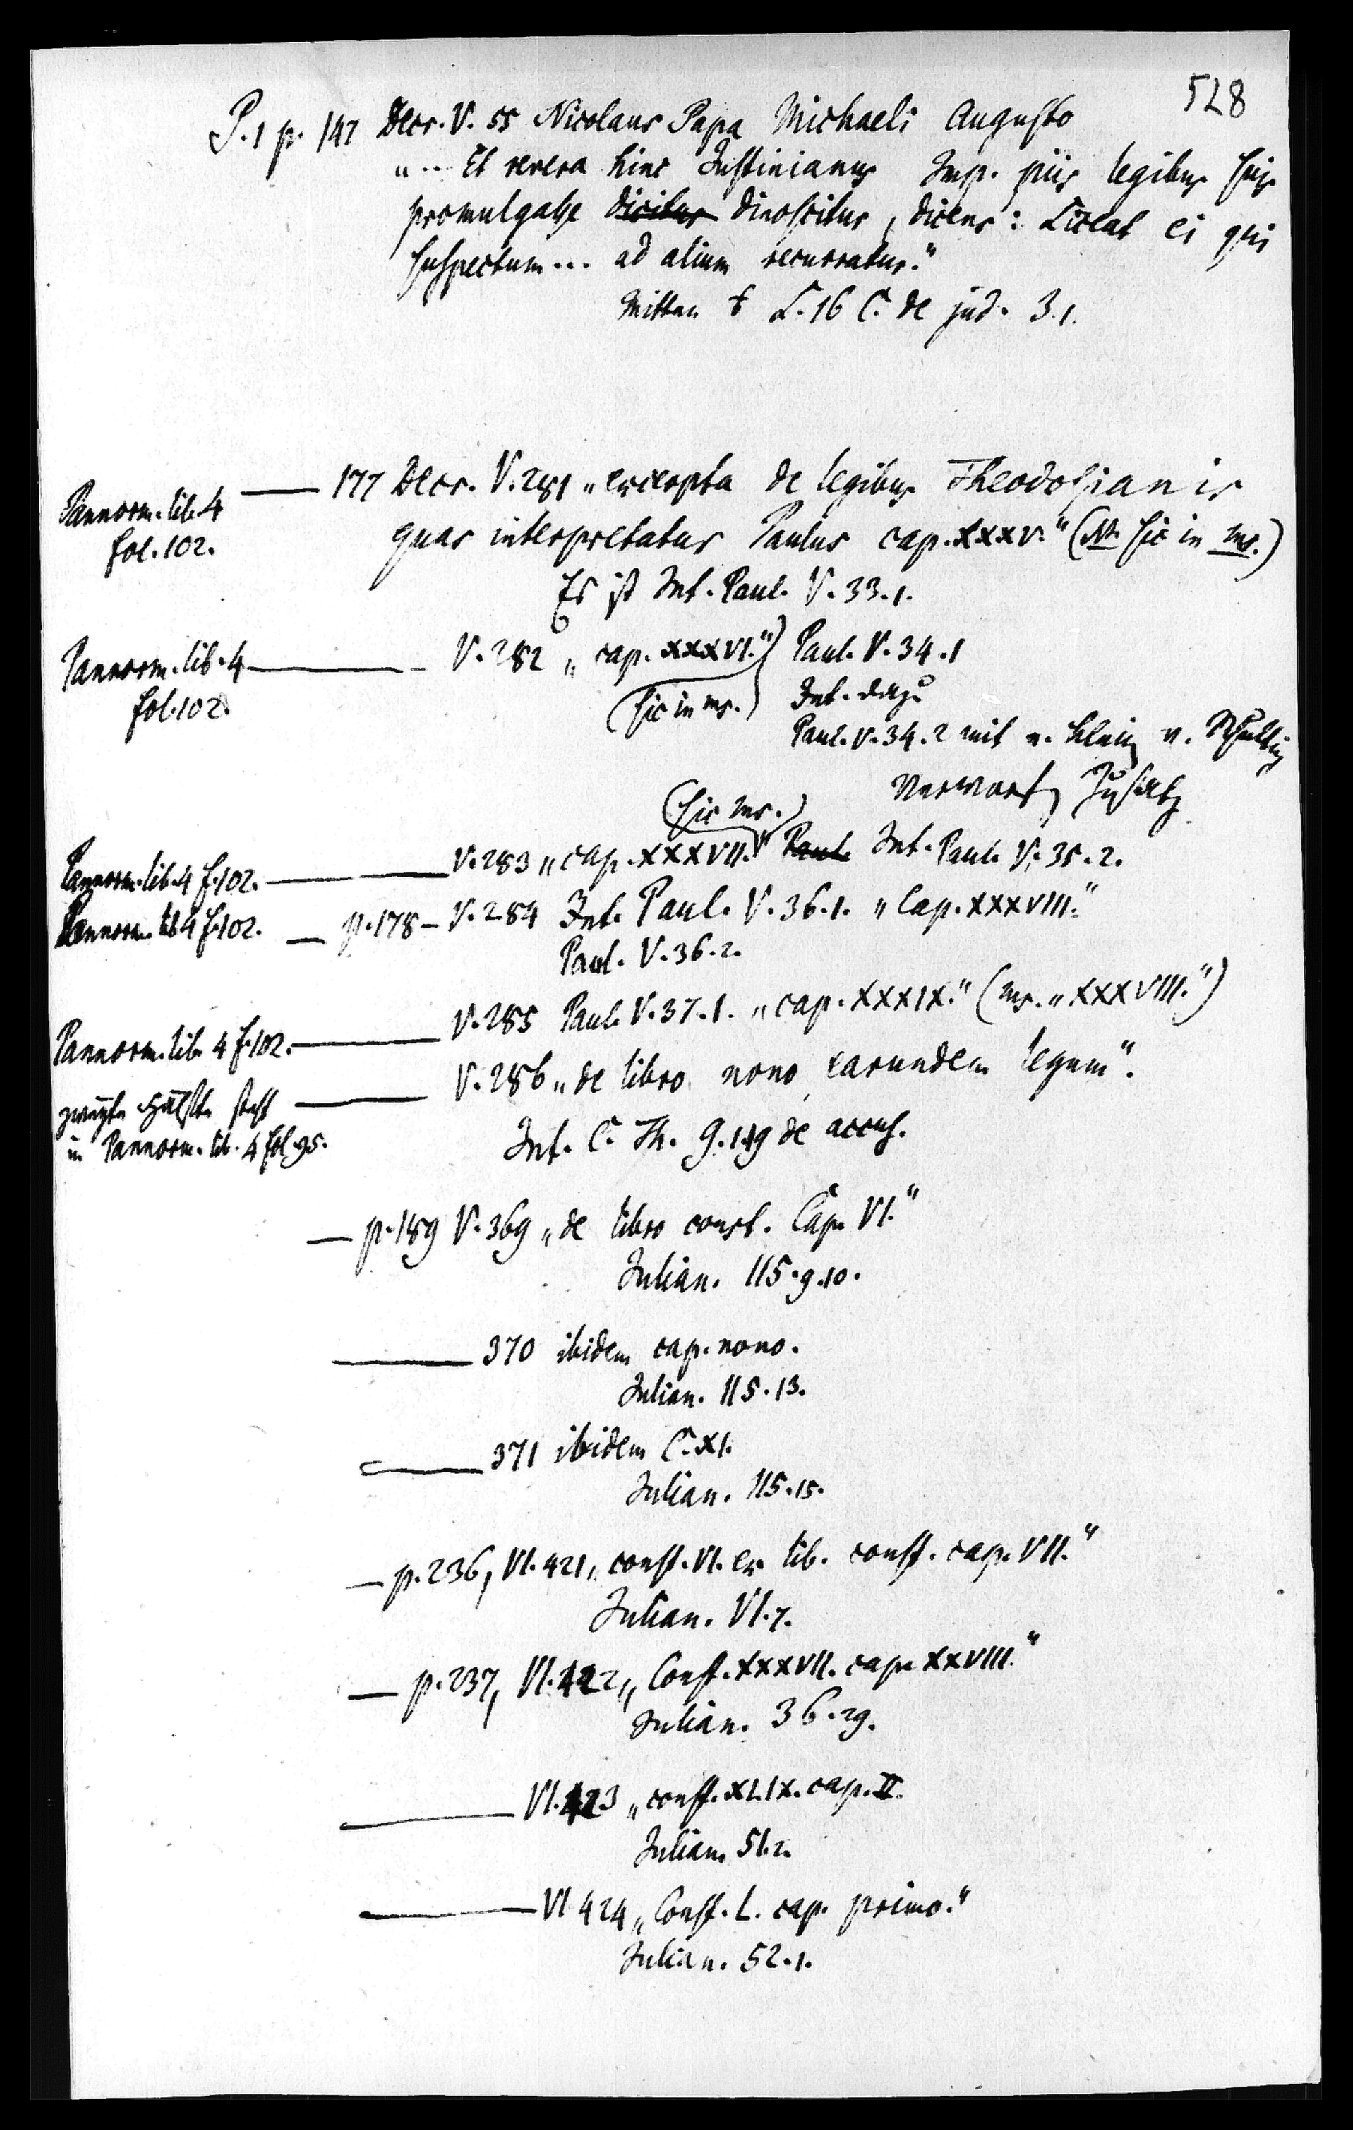 528
P. 1 p. 147 Decr. V. 55 Nicolaus Papa Michaeli Augusto
„... Et revera hinc Justinianus Imp. piis legibus suis
promulgasse dicitur dinoscitur, dicens: Liceat ei qui
suspectum... ad alium recurratur.“
Mitten L. 16 C. de jud. 3.1.
Pannorm. lib. 4 — 177 Decr. V. 281 „excerpta de legibus Theodosianis
fol. 102.
quas interpretatus Paulus cap. XXXV.“ (NB. sic in ms.)
Es ist Int. Paul. V. 33.1.
Pannorm. lib. 4 — V. 282 „cap. XXXVI.“) Paul. V. 34.1
fol. 102.
(sic in ms.) Int. dazu
Paul. V. 34.2 mit e. klein v. Schulting
verworf. Zusatz
(sic ms.)
Pannorm. lib. 4 f. 102. — V. 283 „cap. XXXVII.“ Paul. Int. Paul. V. 35.2.
Pannorm. lib 4 f. 102. — p. 178 — V. 284 Int. Paul. V. 36.1. „Cap. XXXVIII.“
Paul. V. 36.2.
Pannorm. lib. 4 f. 102. — V. 285 Paul. V. 37.1. „cap. XXXIX.“ (ms. „XXXVIII.“)
zweyte Hälfte steht — V. 286 „de libro nono earundem legum“.
in Pannorm. lib. 4 fol 95.
Int. C. Th. 9.1.19 de accus.
— p. 189 V. 369 „de libro const. Cap. VI.“
Julian. 115.9.10.
— 370 ibidem cap. nono.
Julian. 115.13.
— 371 ibidem C. XI.
Julian. 115.15.
— p. 236, VI. 421, „const. VI. ex lib. const. cap. VII.“
Julian. VI.7.
— p. 237, VI. 422, „Const. XXXVII. cap. XXVIII.“
Julian. 36.29.
— VI. 423 „const. XLIX. cap. II.
Julian. 51.2.
— VI 424 „Const. L. cap. primo.“
Julian. 52.1.